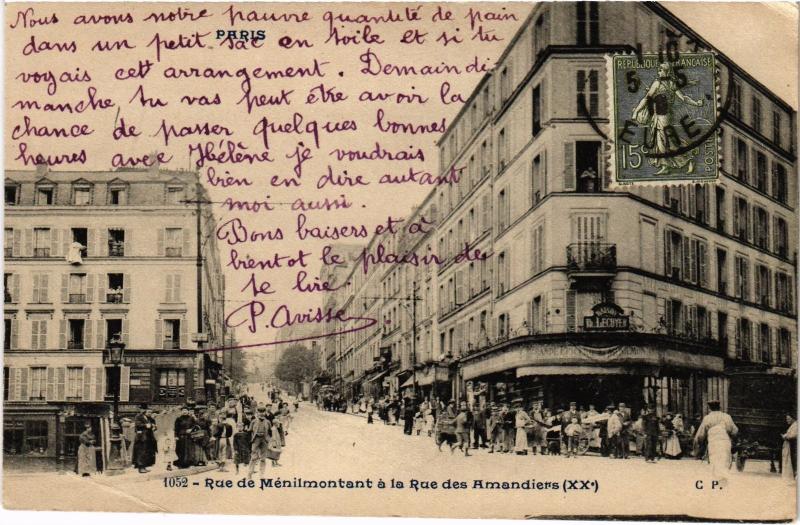 Nous avons notre pauvre quantité de pain
dans un petit sac en toile et si tu
voyais cett arrangement. Demain di-
manche, tu vas peut être avoir la
chance de passer quelques bonnes
heures avec Hélène je voudrais
bien en dire autant
moi aussi.
Bons baisers et à
bientot le plaisir de
te lire.
P. Avisse
PARIS
RÉPUBLIQUE FRANÇAISE
15c
POSTES
EURE
MAISON
D. LECUYER
1052 - Rue de Ménilmontant à la Rue des Amandiers (XXe)
C P.